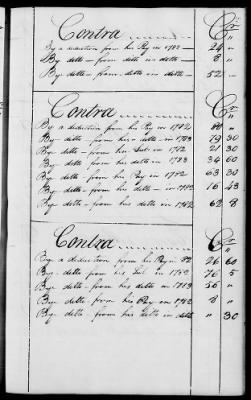 Contra Cr
By a deduction from his Pay in 1782 — 24 "
By ditto — from ditto in ditto — 8 "
By ditto — from ditto in ditto — 52 —
Contra Cr
By a deduction from his Pay in 1782
By ditto from his ditto in 1783 79 30
By ditto from his Sub. in 1782 21 30
By ditto from his ditto in 1783 34 60
By ditto from his Pay in 1782 63 30
By ditto from his ditto in 1782 16 43
By ditto from his ditto in 1782 62 8
Contra Cr
By a deduction from his Pay in 82 26 60
By ditto from his Sub. in 1782 76 5
By ditto from his ditto in 1783 56 "
By ditto from his Pay in 1782 8 "
By ditto from his ditto in ditto " 30